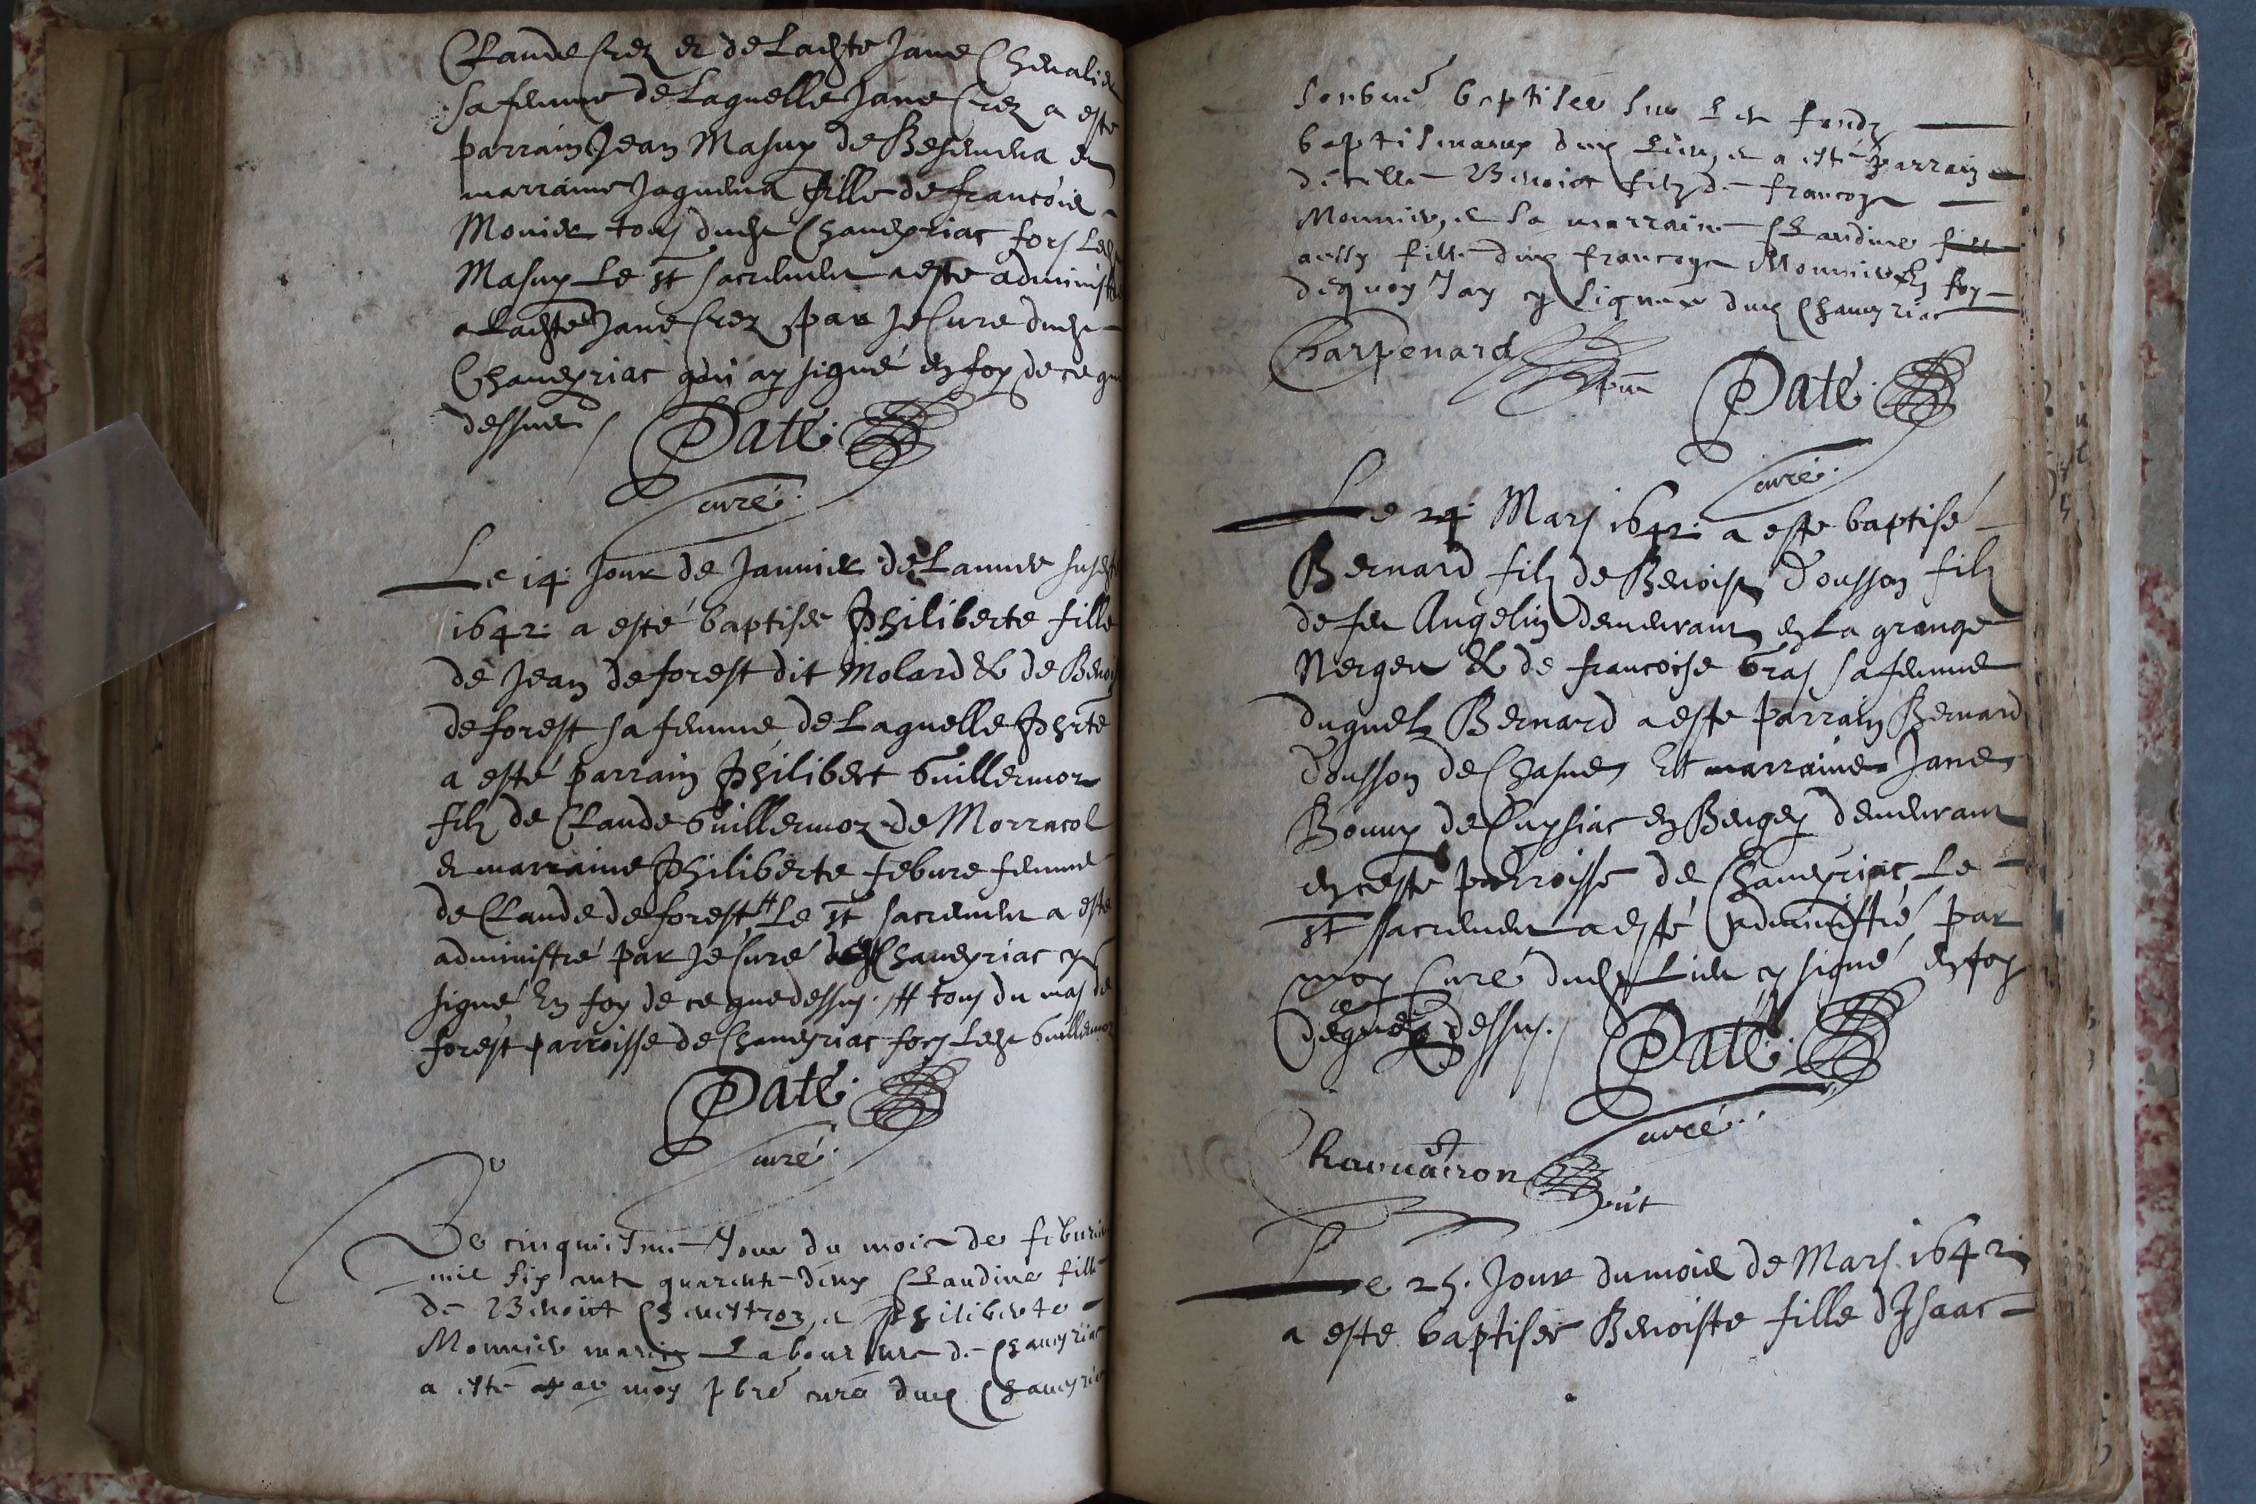 Claude Crez et de Ladite Jane Chevalier
sa femme de Laquelle Jane Crez a este
parrain Jean Masuy de et
marraine fille de francois
Monier tous dudt Chaveyriac fors Ledt
Masuy Le st sacrement a este administré
a Ladte Jane Crez par Je Cure dudt
Chaveyriac qui ay signé en foy de ce que
dessus
Paté
curé
Le 14. Jour de Januier de Lannee susdt
1642. a esté baptisee Philiberte fille
de Jean deforest dit Molard & de Benoi
deforest sa femme de Laquelle Phrte
a esté parrain Philibert Guillermoz
filz de Claude Guillermoz de Morracol
et marraine Philiberte febure femme
de Claude deforest # Le st sacrement a este
administré par Je Curé Chaveyriac cy
signé En foy de ce que dessus. # tous du mas de
forest parroisse de Chaveyriac fors Ledt Guillermoz
Paté
curé
Le cinquiesme Jour du mois de feburier
mil six cent quarente deux Claudine fille
de Benoist et Philiberte
Monnier mariez Laboureurs de Chaveyriac
a esté par moy pbre curé dud Chaveyriac
baptisée sur Les fondz
baptismaux dud Lieu, et a esté parrain
dicelle Benoist filz de francoys
Monnier, et La marraine Claudine
aussy fille dud francoys Monnier En foy
dequoy Jay cy signé dud Chaveyriac
Charpenard
Paté
curé
Le 24. Mars 1642. a este baptisé
Bernard filz de Benoist Dousson filz
de feu Angelin demeurant en La grange
Nergeu & de francoise Gras sa femme
duquel Bernard a este parrain Bernard
Dousson de Chasnes Et marraine Jane
Bouuy de Cuysiac en Beugey demeurant
en ceste parroisse de Chaveyriac Le
st sacrement a esté administré par
moy Curé dudt Lieu cy signé en foy
de que dessus.
Paté
curé
Le 25. Jour du mois de Mars 1642.
a este baptisee Benoiste fille dIsaac